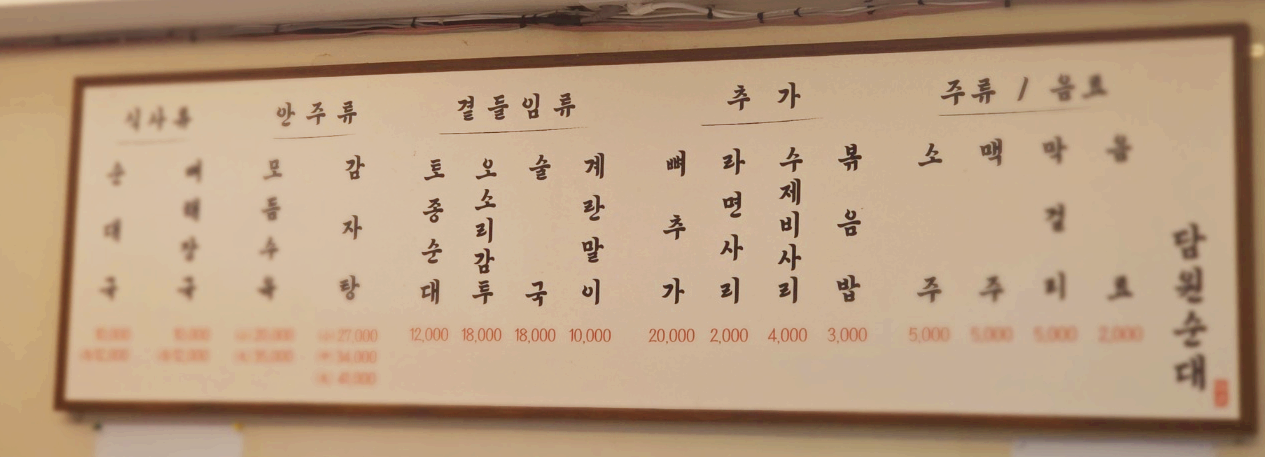 식사류
순대국
뼈해장국
10,000
10,000
안주류
모듬수육
감자탕
27,000
34,000
41,000
곁들임류
토종순대
오소리감투
술국
계란말이
12,000
18,000
18,000
10,000
추가
뼈추가
라면사리
수제비사리
볶음밥
20,000
2,000
4,000
3,000
주류 / 음료
소주
맥주
막걸리
음료
5,000
5,000
5,000
2,000
담원순대